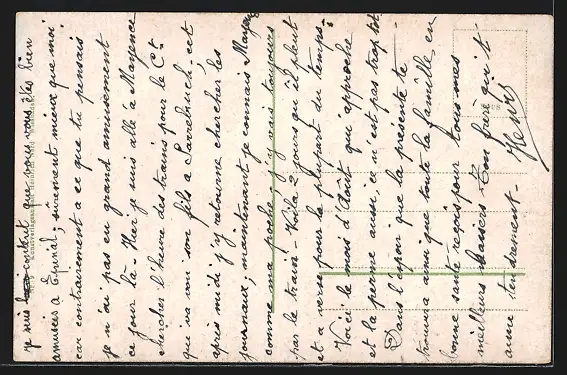 je suis content que vous vous êtes bien
amusées à Épinal, sûrement mieux que moi
car contrairement a ce que tu pensais
je n'ai pas eu grand amusement
ce jour là. Hier je suis allé à Mayence
chercher l'heure des trains pour le Ct
qui va voir son fils a Sarrebruck cet
après midi j'y retourne chercher les
journaux, maintenant je connais Mayence
comme ma poche j'y vais toujours
par le train - Voilà 2 jours qu'il pleut
et a verse pour la plupart du temps.
Voici le mois d'Août qui approche
et la perme aussi, ce n'est pas trop tôt
Dans l'espoir que la présente te
trouvera ainsi que toute la famille en
bonne santé reçois pour tous mes
meilleurs baisers Ton frère qui t
aime tendrement -
Henri